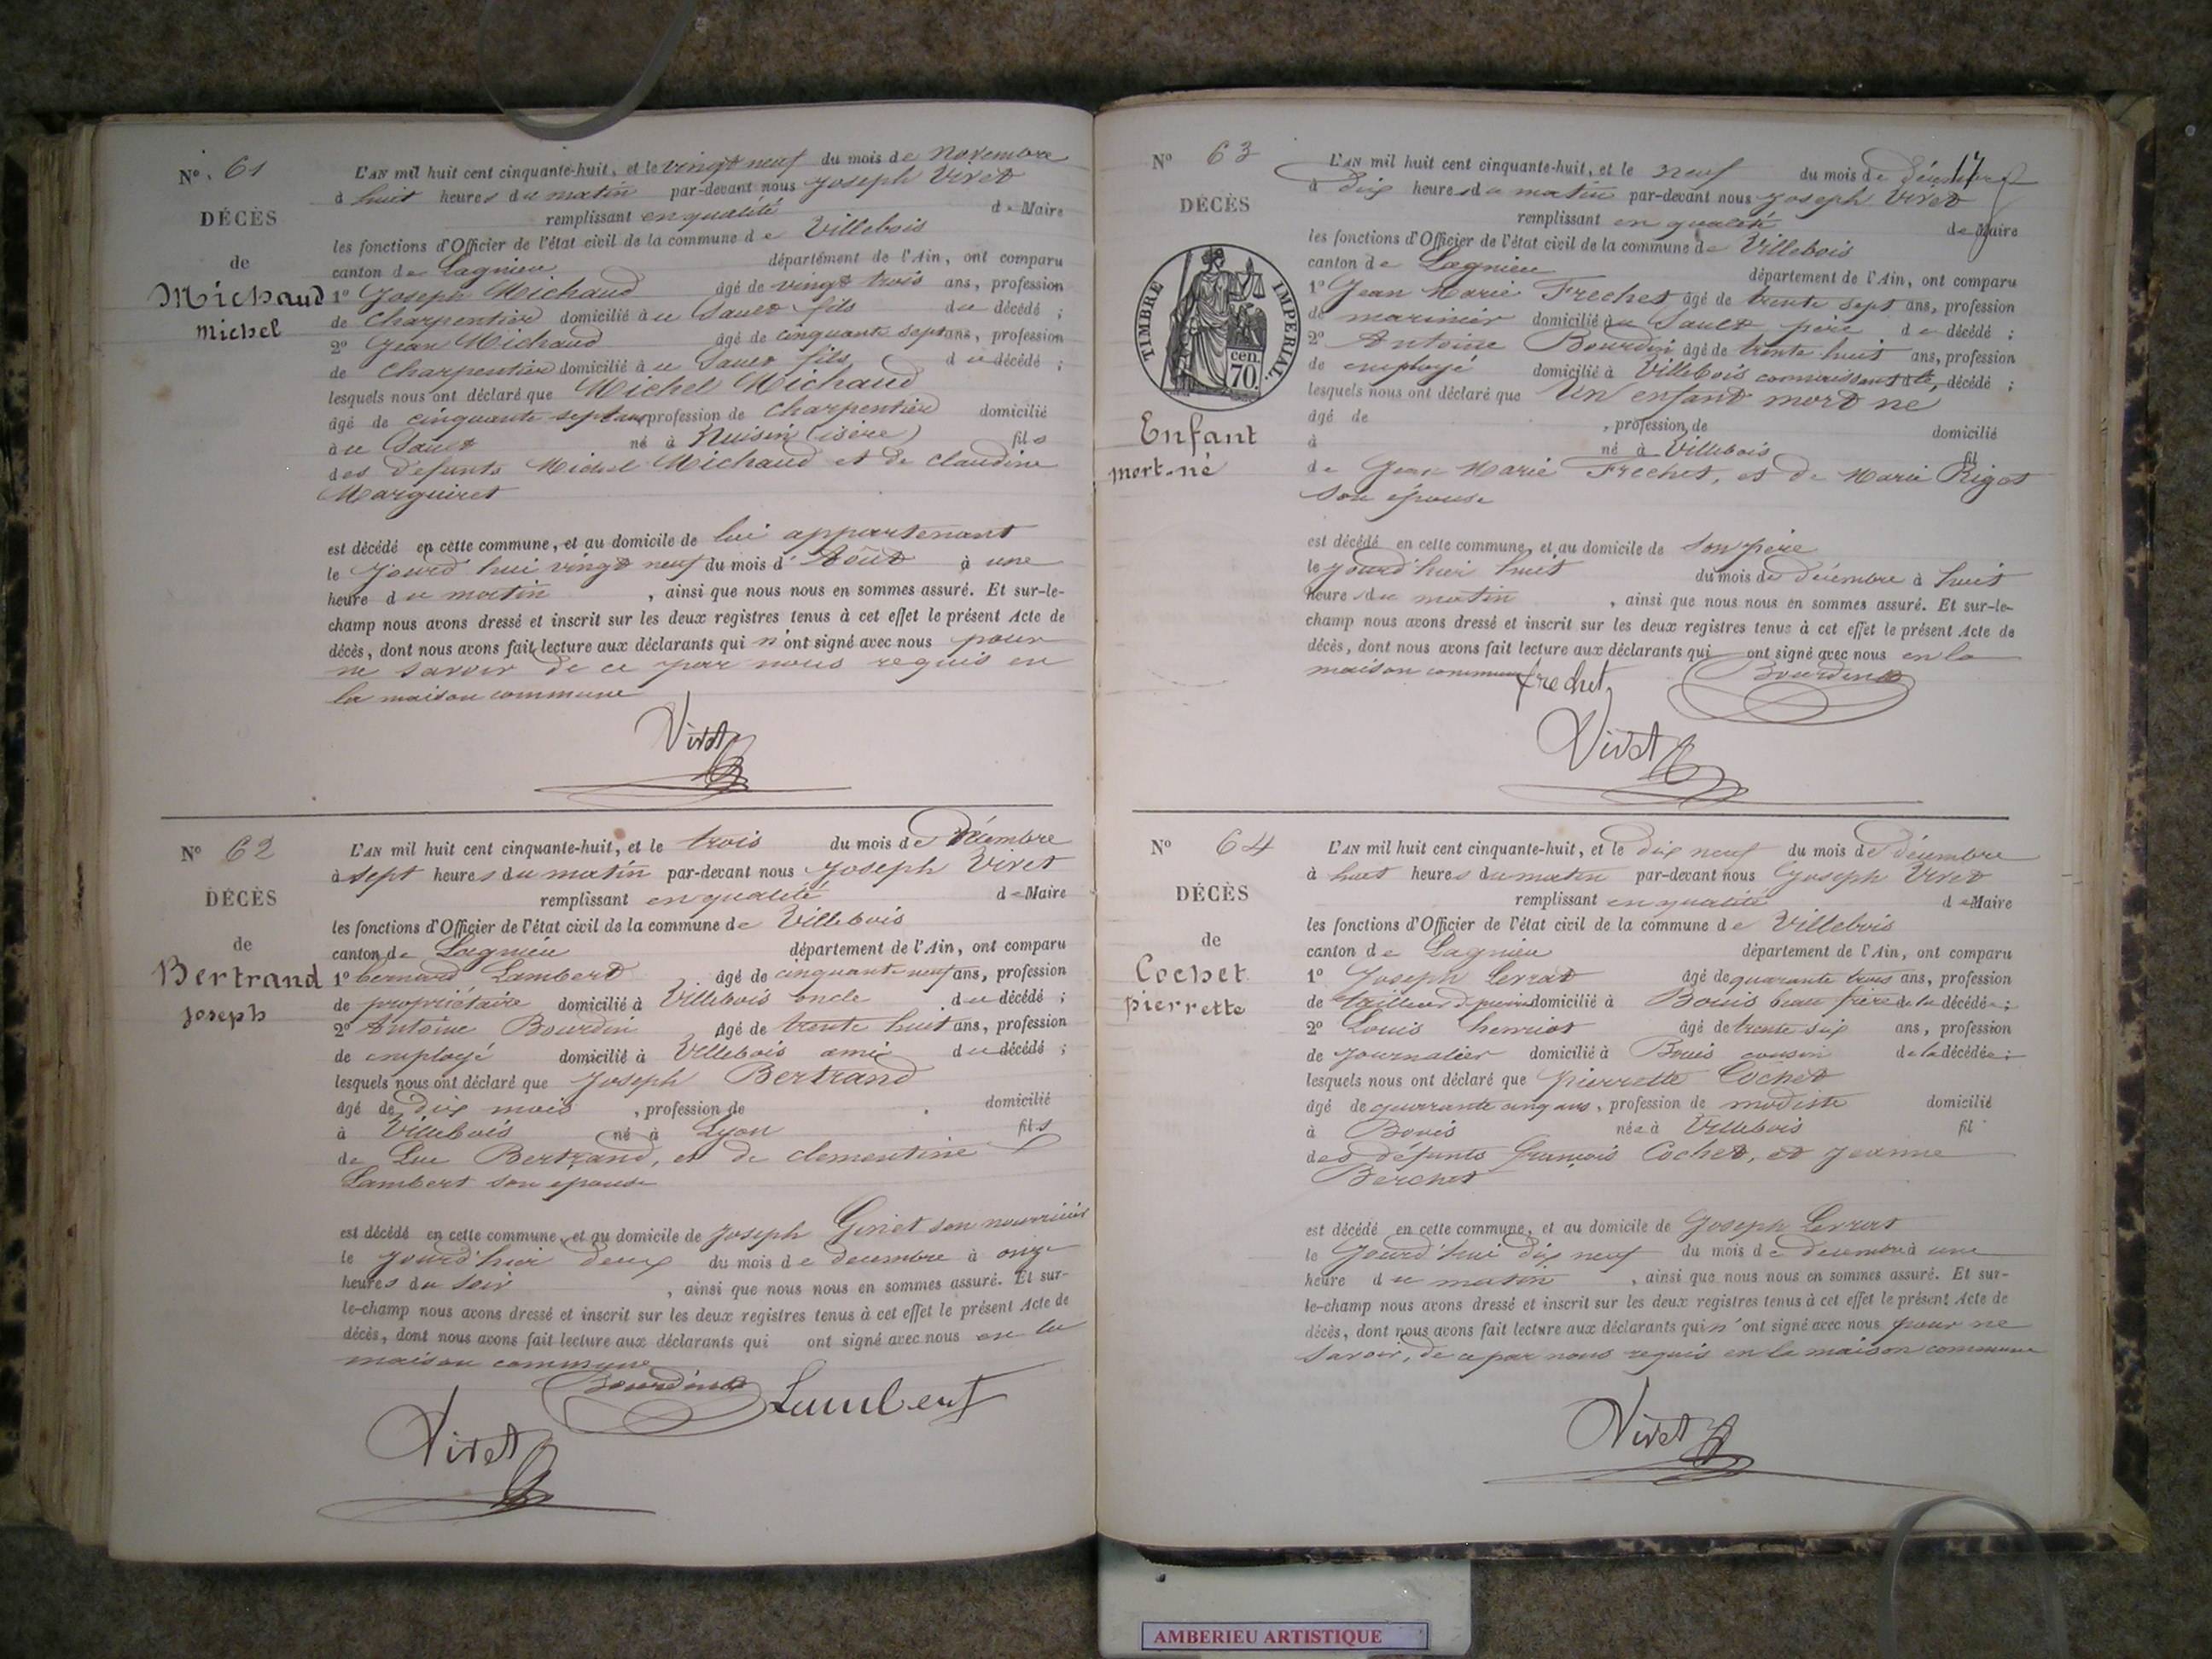 N° 61
DÉCÈS
de
Michaud
Michel
L'AN mil huit cent cinquante-huit, et le vingt neuf du mois de Novembre
à huit heures du matin par-devant nous Joseph Vivet
remplissant en qualité de Maire
les fonctions d'Officier de l'état civil de la commune de Villebois
canton de Lagnieu département de l'Ain, ont comparu
1° Joseph Michaud âgé de vingt trois ans, profession
de Charpentier domicilié au Sault fils du décédé ;
2° Jean Michaud âgé de cinquante sept ans, profession
de Charpentier domicilié au Sault fils du décédé ;
lesquels nous ont déclaré que Michel Michaud
âgé de cinquante sept ans profession de Charpentier domicilié
au Sault né à (isère) fils
des defunts Michel Michaud et de claudine
Marguiret
est décédé en cette commune, et au domicile de lui appartenant
le jourd'hui vingt neuf du mois d'Août à une
heure du matin , ainsi que nous nous en sommes assuré. Et sur-le-
champ nous avons dressé et inscrit sur les deux registres tenus à cet effet le présent Acte de
décès, dont nous avons fait lecture aux déclarants qui n'ont signé avec nous pour
ne savoir de ce par nous requis en
la maison commune
Vivet
N° 62
DÉCÈS
de
Bertrand
joseph
L'AN mil huit cent cinquante-huit, et le trois du mois de Décembre
à sept heures du matin par-devant nous Joseph Vivet
remplissant en qualité de Maire
les fonctions d'Officier de l'état civil de la commune de Villebois
canton de Lagnieu département de l'Ain, ont comparu
1° bernard Lambert âgé de cinquante neuf ans, profession
de propriétaire domicilié à Villebois oncle du décédé ;
2° Antoine Bourdin âgé de trente huit ans, profession
de employé domicilié à Villebois ami du décédé ;
lesquels nous ont déclaré que Joseph Bertrand
âgé de dix mois , profession de domicilié
à Villebois né à Lyon fils
de Luc Bertrand, et de clementine
Lambert son epouse
est décédé en cette commune, et au domicile de Joseph Giriet son nourricier
le jourd'hier deux du mois de decembre à onze
heures du soir , ainsi que nous nous en sommes assuré. Et sur-
le-champ nous avons dressé et inscrit sur les deux registres tenus à cet effet le présent Acte de
décès, dont nous avons fait lecture aux déclarants qui ont signé avec nous en la
maison commune
Bourdin Lambert
Vivet
17
N° 63
DÉCÈS
TIMBRE IMPERIAL.
cen.
70.
Enfant
mort-né
L'AN mil huit cent cinquante-huit, et le neuf du mois de décembre
à dix heures du matin par-devant nous Joseph Vivet
remplissant en qualité de Maire
les fonctions d'Officier de l'état civil de la commune de Villebois
canton de Lagnieu département de l'Ain, ont comparu
1° Jean Marie Frechet âgé de trente sept ans, profession
de marinier domicilié au Sault père du décédé ;
2° Antoine Bourdin âgé de trente huit ans, profession
de employé domicilié à Villebois connaissant le décédé ;
lesquels nous ont déclaré que Un enfant mort né
âgé de , profession de domicilié
à né à Villebois fil
de Jean Marie Frechet, et de Marie Rigot
son épouse
est décédé en cette commune, et au domicile de son père
le jourd'hier huit du mois de décembre à huit
heure du matin , ainsi que nous nous en sommes assuré. Et sur-le-
champ nous avons dressé et inscrit sur les deux registres tenus à cet effet le présent Acte de
décès, dont nous avons fait lecture aux déclarants qui ont signé avec nous en la
maison commune frechet Bourdin
Vivet
N° 64
DÉCÈS
de
Cochet
pierrette
L'AN mil huit cent cinquante-huit, et le dix neuf du mois de décembre
à huit heures du matin par-devant nous Joseph Vivet
remplissant en qualité de Maire
les fonctions d'Officier de l'état civil de la commune de Villebois
canton de Lagnieu département de l'Ain, ont comparu
1° Joseph Lerrat âgé de quarante trois ans, profession
de tailleur de pierre domicilié à Bouis beau frère de la décédée ;
2° Louis henriot âgé de trente six ans, profession
de journalier domicilié à Bouis cousin de la décédée ;
lesquels nous ont déclaré que pierrette Cochet
âgé de quarante cinq ans, profession de modiste domicilié
à Bouis née à Villebois fil
des défunts françois Cochet, et Jeanne
Berchet
est décédé en cette commune, et au domicile de Joseph Lerrat
le jourd'hui dix neuf du mois de decembre à une
heure du matin , ainsi que nous nous en sommes assuré. Et sur-
le-champ nous avons dressé et inscrit sur les deux registres tenus à cet effet le présent Acte de
décès, dont nous avons fait lecture aux déclarants qui n'ont signé avec nous pour ne
savoir, de ce par nous requis en la maison commune
Vivet
AMBERIEU ARTISTIQUE